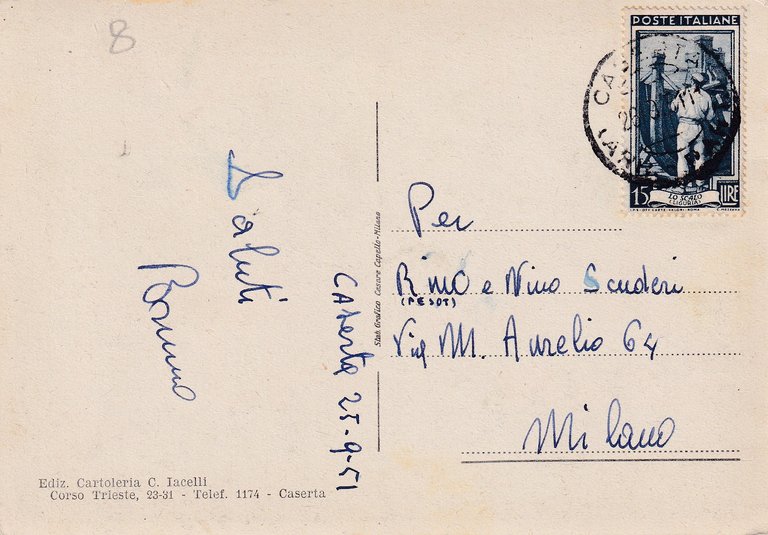 8
POSTE ITALIANE
15 LIRE
LO SCALO
(LIGURIA)
Saluti
Caserta 25-9-51
Stab. Grafico Cesare Capello-Milano
Per
Rino e Nino Scuderi
(PESOT)
Via M. Aurelio 64
Milano
Ediz. Cartoleria C. Iacelli
Corso Trieste, 23-31 - Telef. 1174 - Caserta